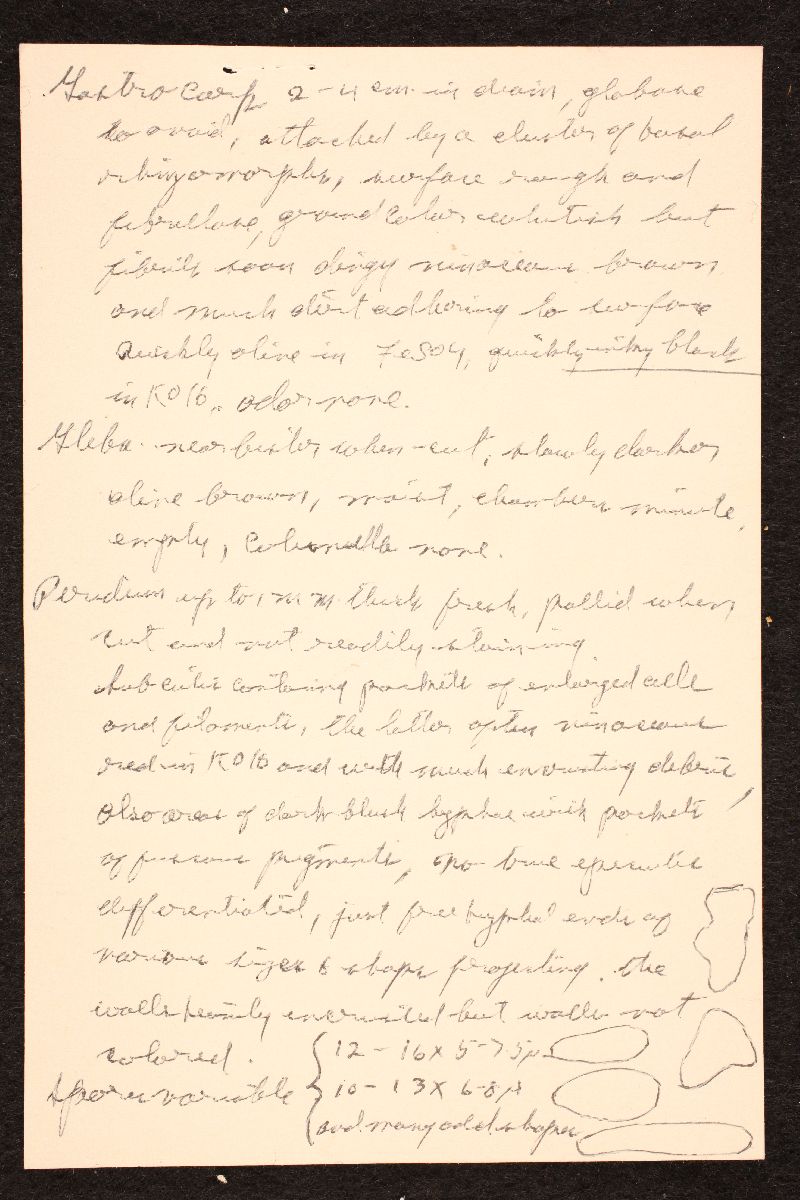 Gastrocarp 2-4 cm in diam, globose
to ovoid, attached by a cluster of basal
rhizomorphs, surface rough and
fibrillose, ground color whitish but
fibrils soon dingy vinaceous brown
and much dirt adhering to surface
Quickly olive in FeSO4, quickly inky black
in KOH. odor none.
Gleba near buster when cut, slowly darker
olive brown, moist, chambers minute,
empty, Columella none.
Peridium up to 1 mm thick fresh, pallid when
cut and not readily staining
Subcutis containing pockets of enlarged cells
and filaments, the latter often vinaceous
red in KOH and with much encrusting debris,
also areas of dark hyphae with pockets
of fuscous pigments, no true epicutis
differentiated, just free hyphal ends of
various sizes & shape projecting. the
walls encrusted but walls not
colored.
Spores variable 12-16 x 5-7.5µ
10-13 x 6-8µ
and many odd shapes